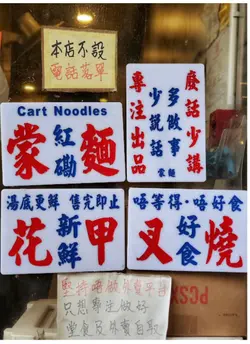 本店不設
電話落單
廢話少講
多做事
少說話
蒙麵
專注出品
Cart Noodles
蒙 紅磡 麵
湯底更鮮 售完即止
花 新鮮 甲
唔等得·唔好食
叉 好食 燒
堅持唔做外賣平台
只想專注做好
堂食及外賣自取
PCSX